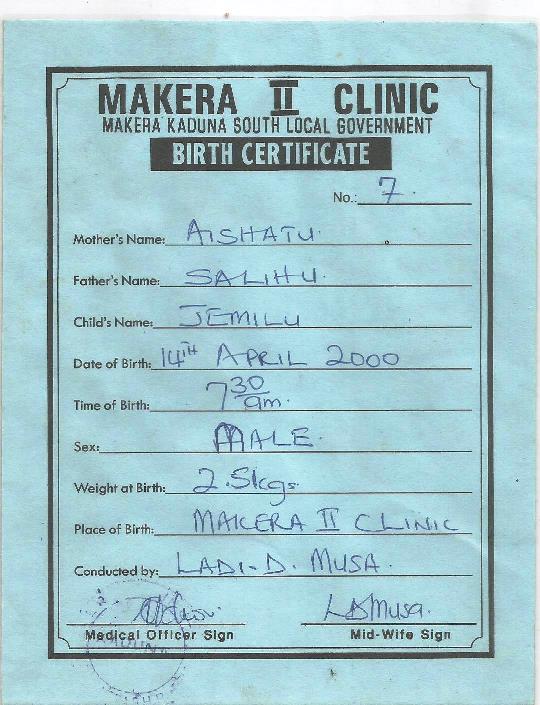 MAKERA II CLINIC
MAKERA KADUNA SOUTH LOCAL GOVERNMENT
BIRTH CERTIFICATE
No.: 7.
Mother's Name: AISHATU.
Father's Name: SALIHU.
Child's Name: JEMILU
Date of Birth: 14TH APRIL 2000
Time of Birth: 7 30 am.
Sex: MALE.
Weight at Birth: 2.5kgs
Place of Birth: MAKERA II CLINIC
Conducted by: LADI-D. MUSA.
LDMusa.
Medical Officer Sign Mid-Wife Sign